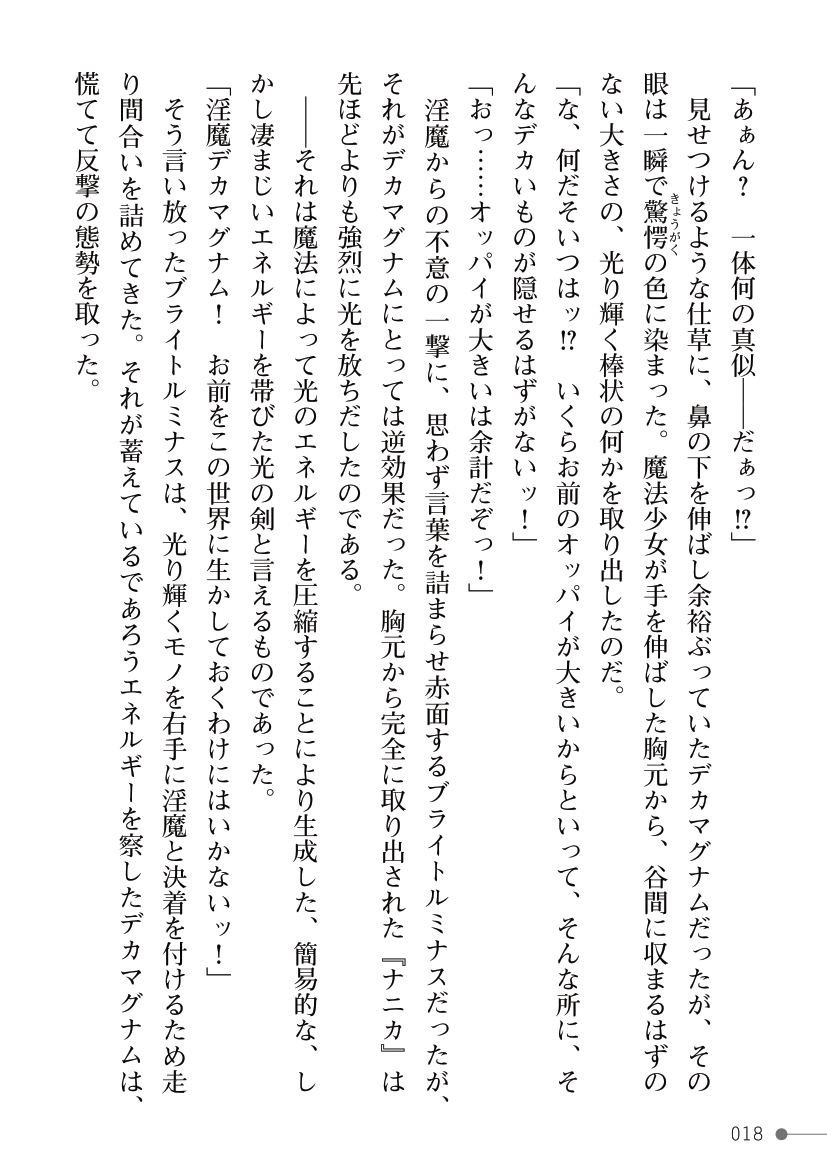 「あぁん？　一体何の真似――だぁっ!?」
　見せつけるような仕草に、鼻の下を伸ばし余裕ぶっていたデカマグナムだったが、その
眼は一瞬で驚愕の色に染まった。魔法少女が手を伸ばした胸元から、谷間に収まるはずの
きょうがく
ない大きさの、光り輝く棒状の何かを取り出したのだ。
「な、何だそいつはッ!?　いくらお前のオッパイが大きいからといって、そんな所に、そ
んなデカいものが隠せるはずがないッ！」
「おっ……オッパイが大きいは余計だぞっ！」
　淫魔からの不意の一撃に、思わず言葉を詰まらせ赤面するブライトルミナスだったが、
それがデカマグナムにとっては逆効果だった。胸元から完全に取り出された『ナニカ』は
先ほどよりも強烈に光を放ちだしたのである。
　――それは魔法によって光のエネルギーを圧縮することにより生成した、簡易的な、し
かし凄まじいエネルギーを帯びた光の剣と言えるものであった。
「淫魔デカマグナム！　お前をこの世界に生かしておくわけにはいかないッ！」
　そう言い放ったブライトルミナスは、光り輝くモノを右手に淫魔と決着を付けるため走
り間合いを詰めてきた。それが蓄えているであろうエネルギーを察したデカマグナムは、
慌てて反撃の態勢を取った。
018